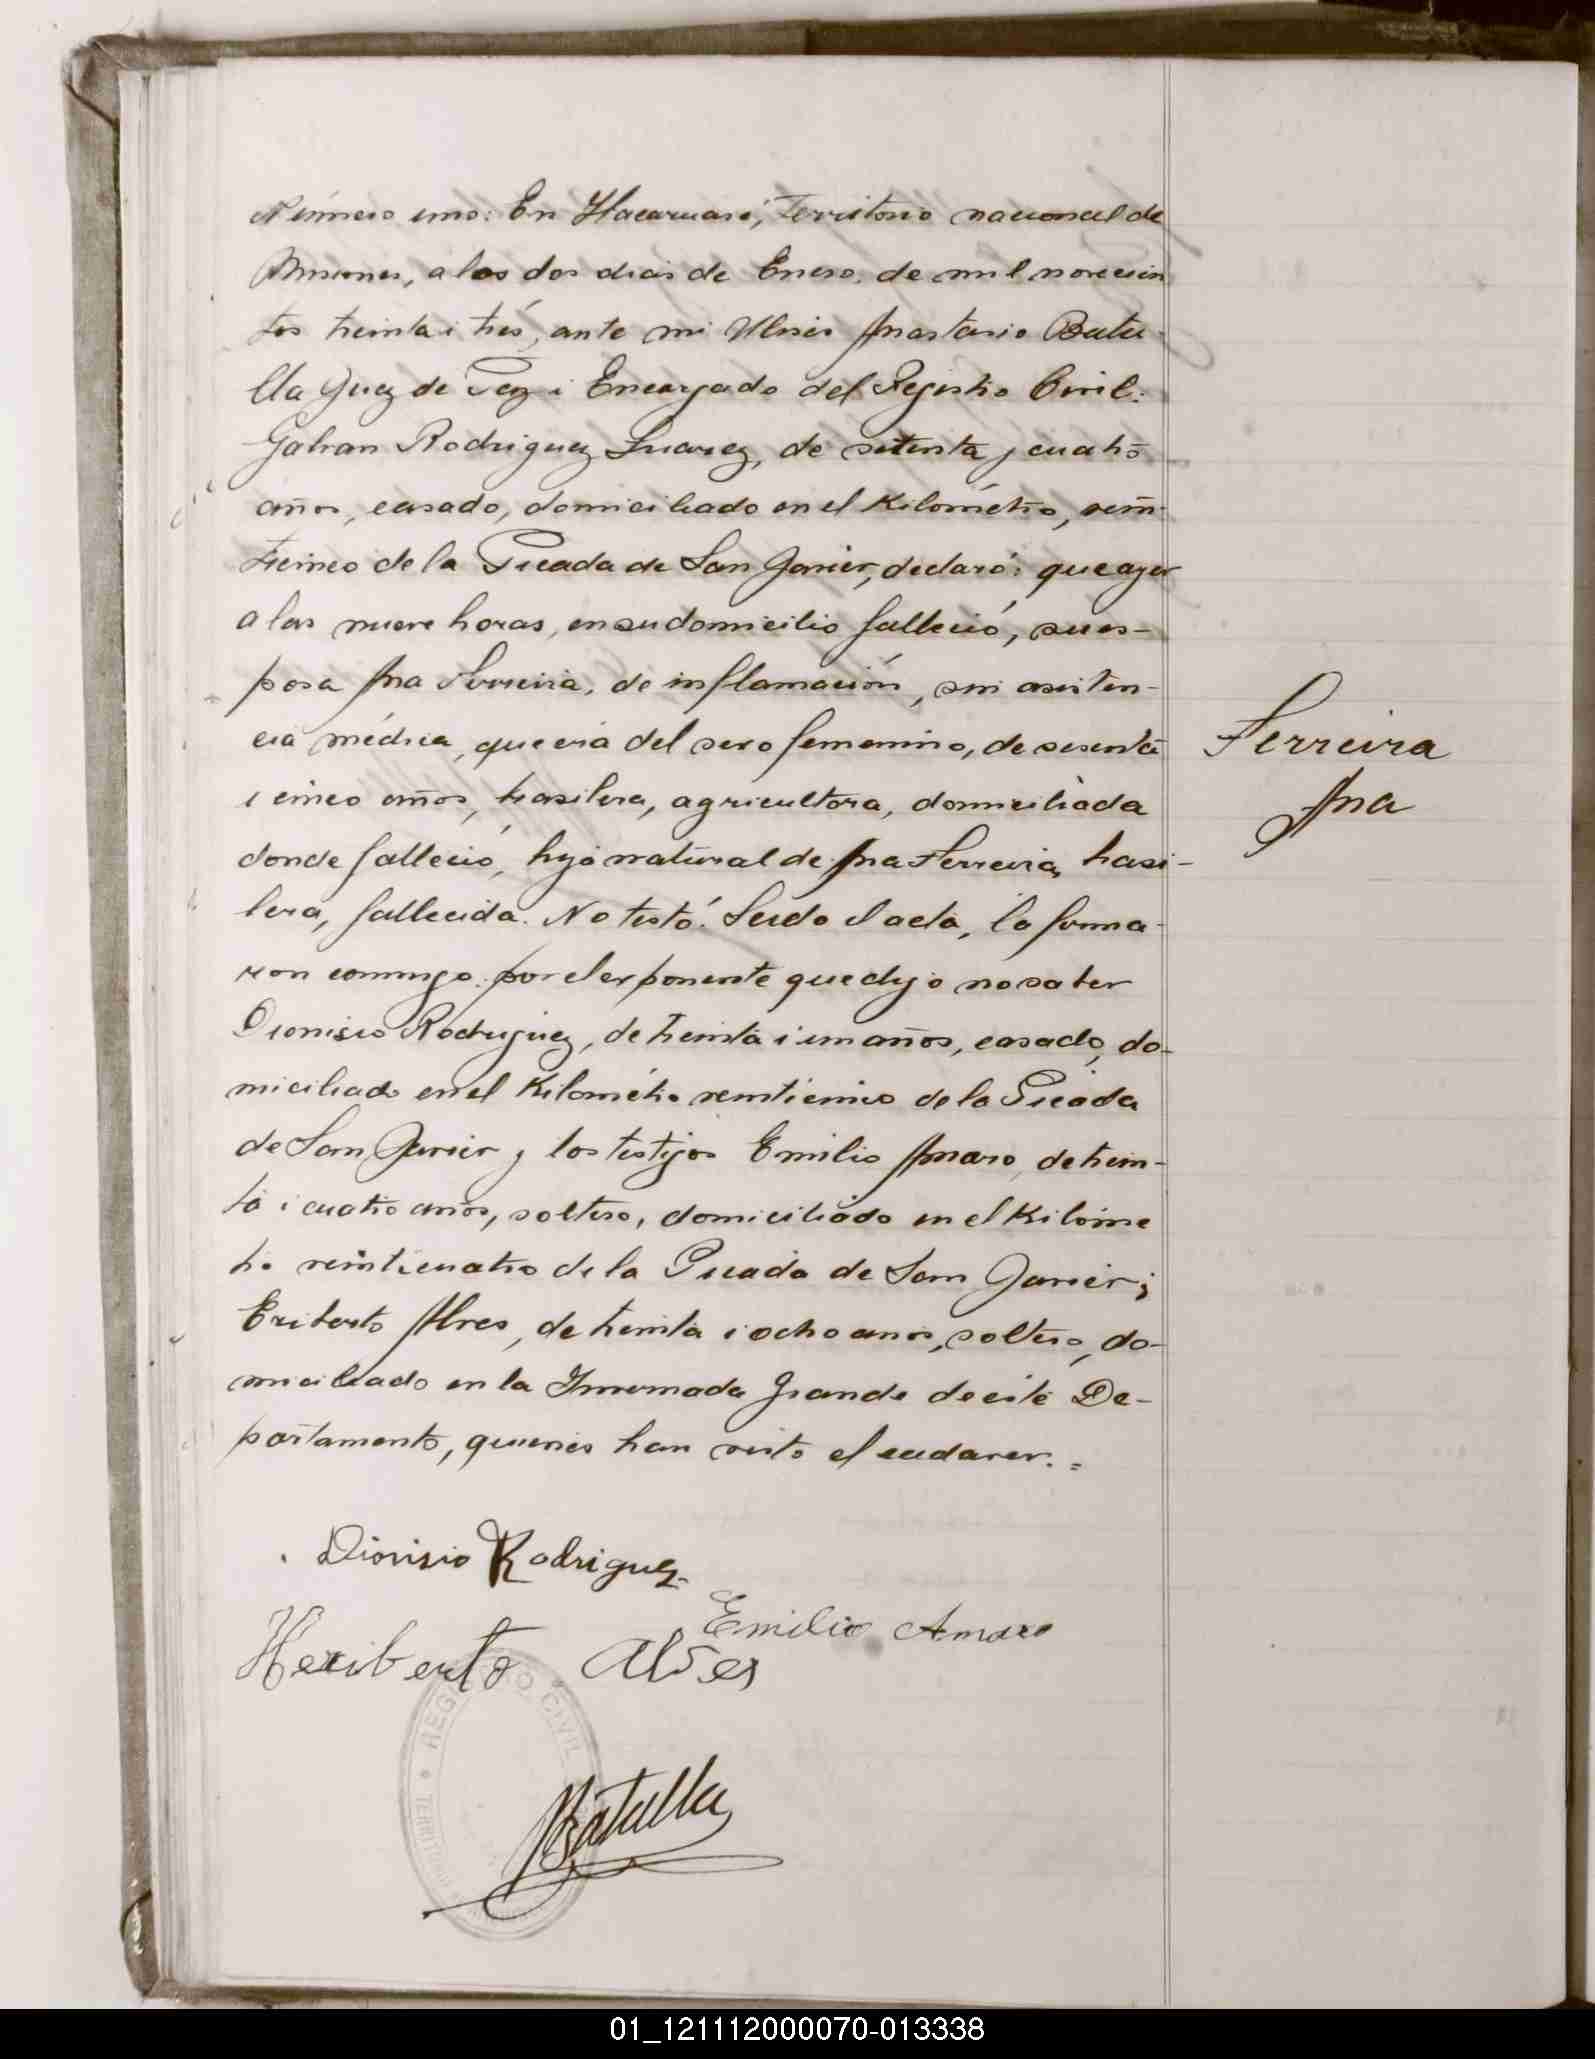 Número uno: En Itacaruaré, Territorio nacional de
Misiones, a los dos dias de Enero, de mil novecien
tos treinta i trés, ante mi Ulises Anastasio Batu-
lla Juez de Paz i Encargado del Registro Civil:
Galvan Rodriguez Suarez, de setenta y cuatro
años, casado, domiciliado en el Kilometro, vein-
ticinco de la Picada de San Javier, declaró: que ayer
a las nueve horas, en su domicilio falleció, su es-
posa Ana Ferreira, de inflamación, sin asisten-
cia médica, que era del sexo femenino, de sesenta
i cinco años, brasilera, agricultora, domiciliada
donde falleció, hija natural de Ana Ferreira, brasi-
lera, fallecida. No testó. Leida el acta, la firma-
ron conmigo: por el exponente que dijo no saber
Dionisio Rodriguez, de treinta i un años, casado, do-
miciliado en el Kilométro veinticinco de la Picada
de San Javier y los testigos Emilio Amaro, de trein-
ta i cuatro años, soltero, domiciliado en el Kilóme
tro veinticuatro de la Picada de San Javier i
Eriberto Alves, de treinta i ocho anos, soltero, do-
miciliado en la Invernada Grande de este De-
partamento, quienes han visto el cadaver. =
Ferreira
Ana
Dionisio Rodriguez
Emilio Amaro
Heriberto Alves
REGISTRO CIVIL
Batulla
01_121112000070-013338